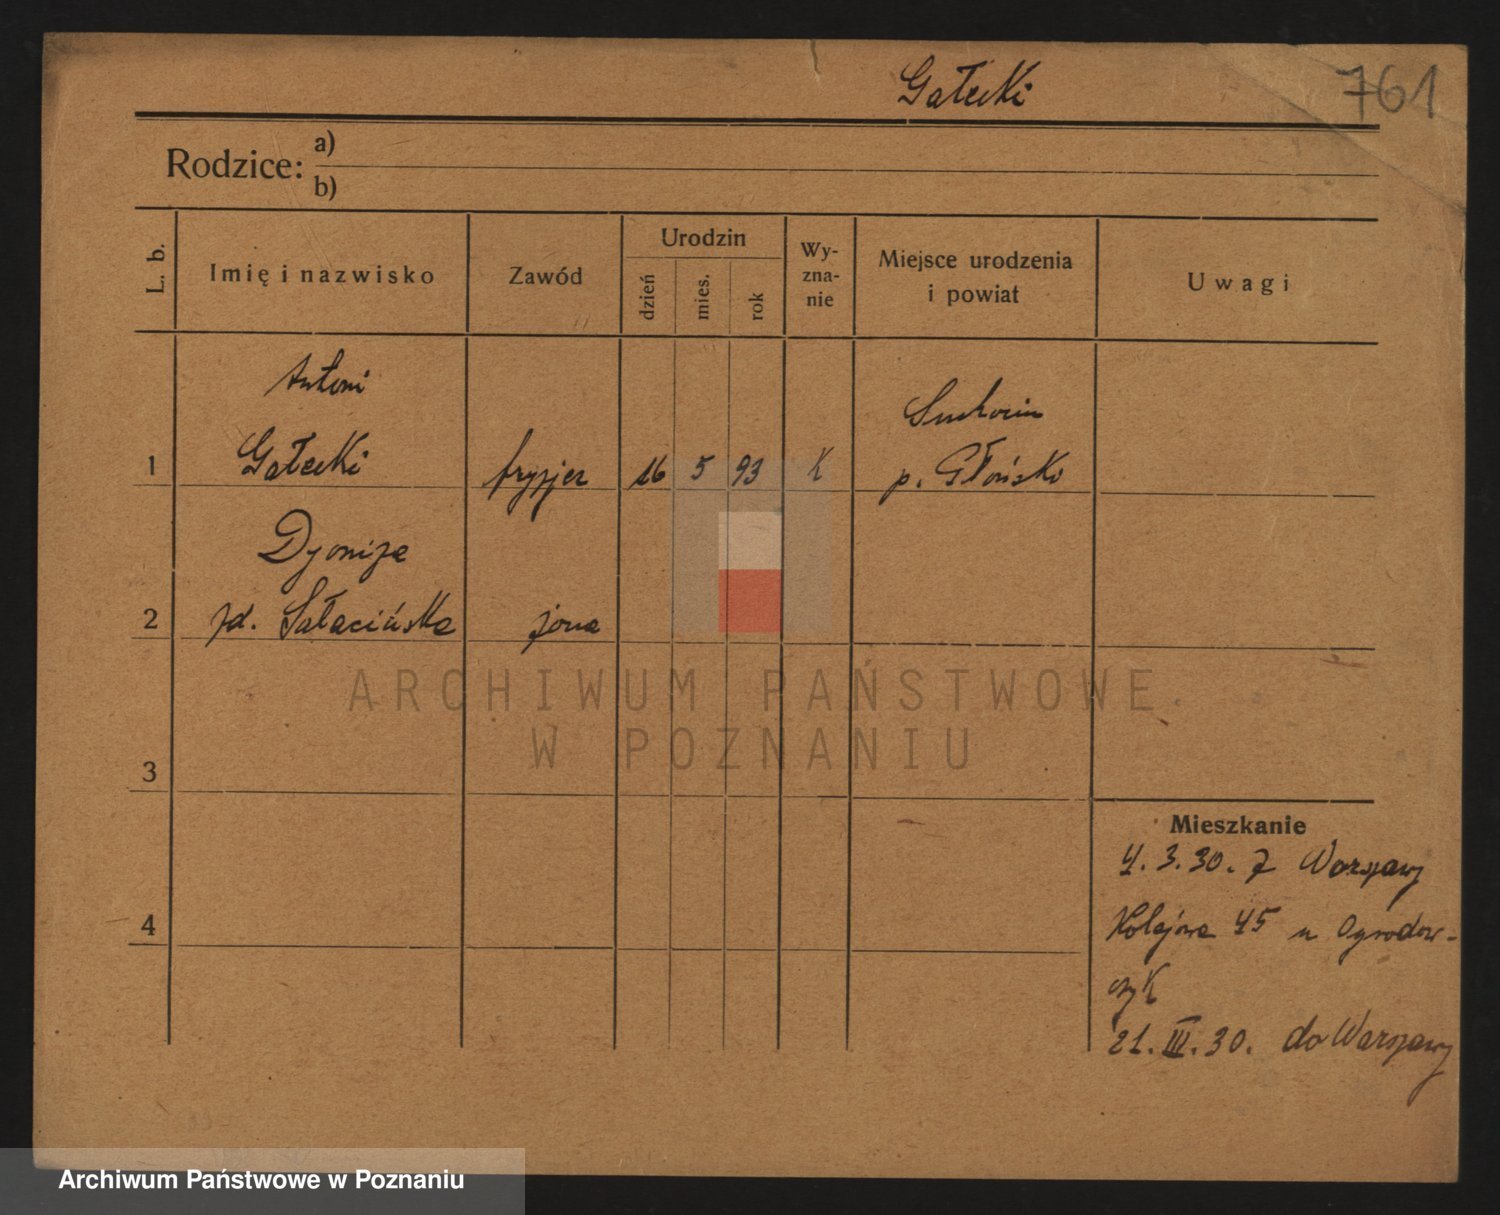 Gałecki
761
Rodzice:
a)
b)
L. b.
Imię i nazwisko
Zawód
Urodzin
dzień
mies.
rok
Wy-
zna-
nie
Miejsce urodzenia
i powiat
Uwagi
Antoni
Suchocin
1 Gałecki fryzjer 16 5 93 K p. Płoński
Dyoniza
2 zd. Sałacińska żona
3
4
Mieszkanie
4. 3. 30. z Warszawy
Kolejowa 45 u Ogrodow-
czyk
21. III. 30. do Warszawy
ARCHIWUM PAŃSTWOWE
W POZNANIU
Archiwum Państwowe w Poznaniu